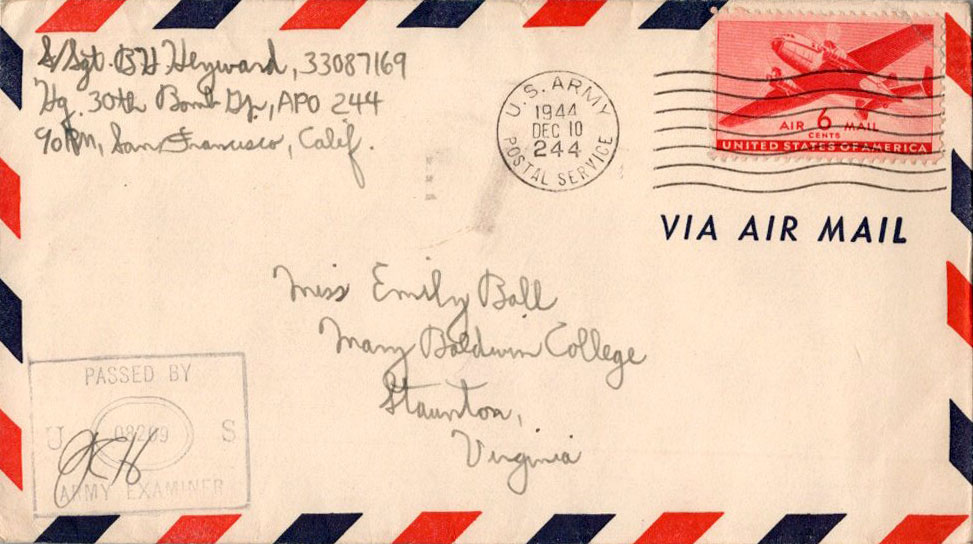 S/Sgt. BH Heyward, 33087169
Hq. 30th Bomb Gp., APO 244
90 PM, San Francisco, Calif.
U.S. ARMY
1944
DEC 10
244
POSTAL SERVICE
AIR 6 MAIL
CENTS
UNITED STATES OF AMERICA
VIA AIR MAIL
Miss Emily Ball
Mary Baldwin College
Staunton,
Virginia
PASSED BY
U 08209 S
ARMY EXAMINER